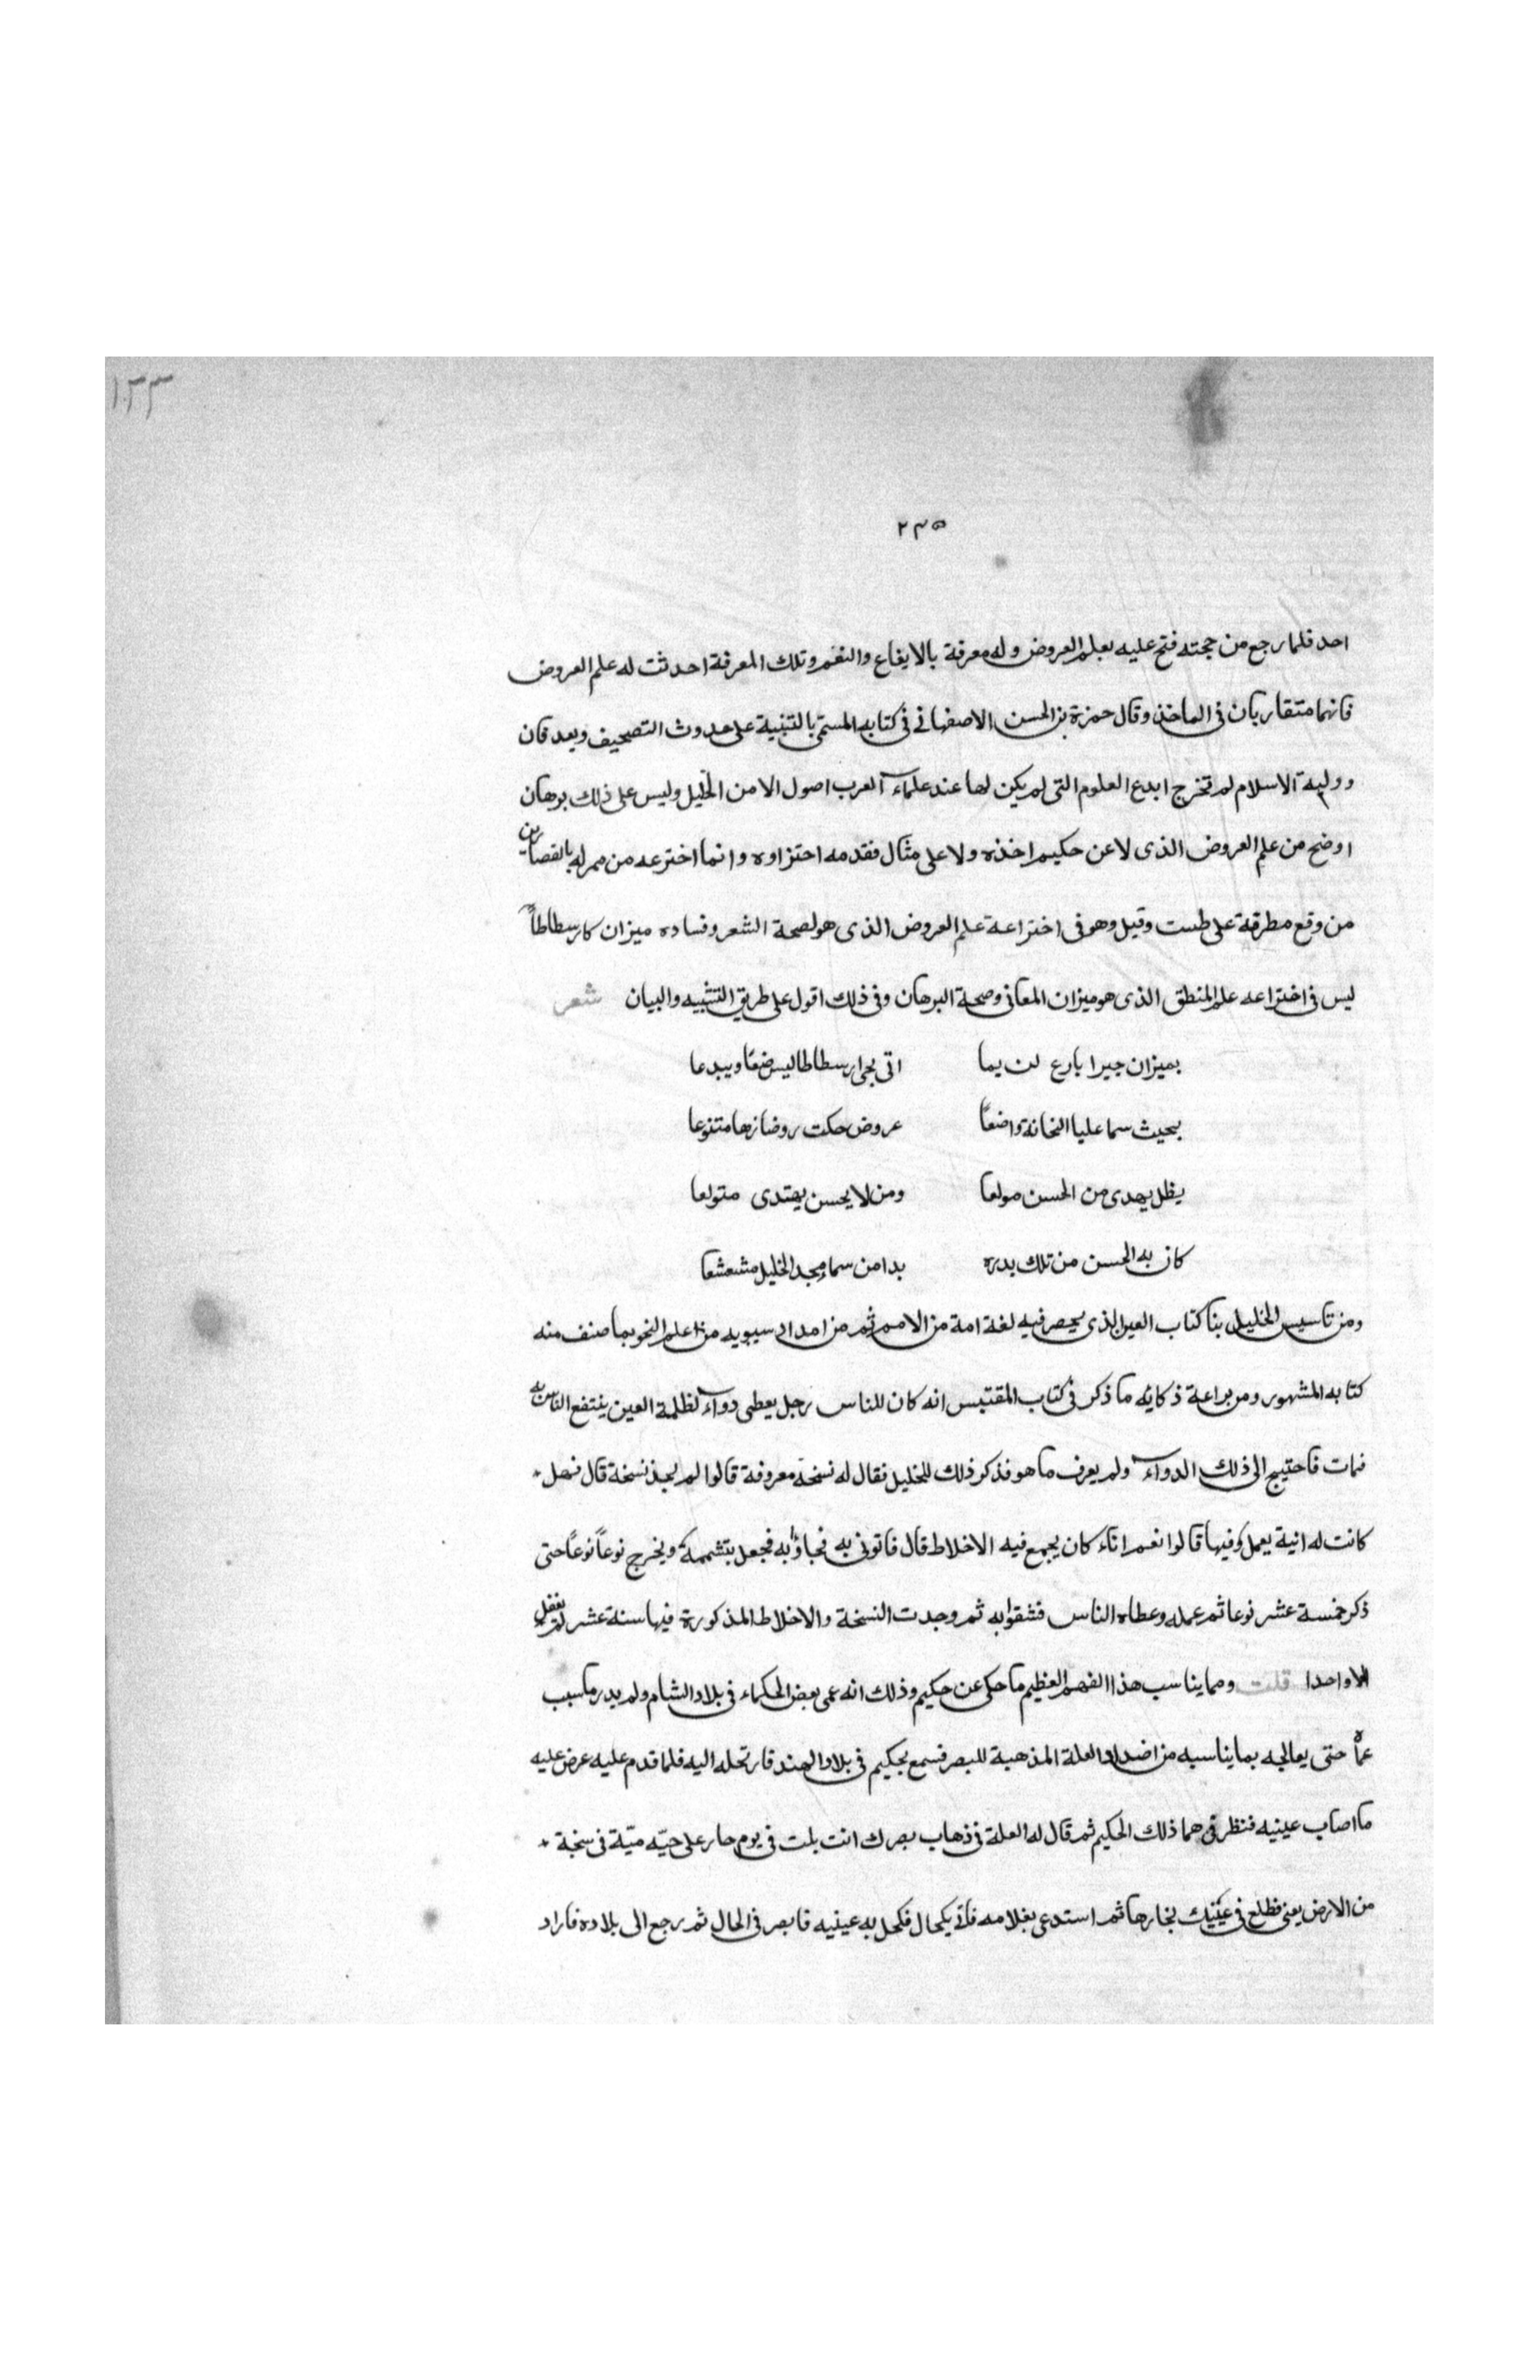 ١٣٣
٢٣٥
احد فلما رجع من حجته فتح عليه بعلم العروض وله معرفة بالايقاع والنغم وتلك المعرفة احدثت له علم العروض
فانهما متقاربان فى الماخذ وقال حمزة بن الحسن الاصفهانى فى كتابه المسمى بالتنبية على حدوث التصحيف وبعد فان
دولية الاسلام لم تخرج ابدع العلوم التى لم يكن لها عند علماء العرب اصول الا من الخليل وليس على ذلك برهان
اوضح من علم العروض الذى لا عن حكيم اخذه ولا على مثال فقدمه احتزاوه وانما اخترعه من ممر له بالقصارين
من وقع مطرقة على طست وقيل وهو فى اختراعة علم العروض الذى هو لصحة الشعر وفساده ميزان كارسطاطا
ليس فى اختراعه علم المنطق الذى هو ميزان المعانى وصحة البرهان وفى ذلك اقول على طريق التشبيه والبيان شعر
بميزان حبرا بارع اتى بجى ارسطاطاليس ضعا ويبدعا
بحيث سما عليا واضعًا عروض حكت روضا زها متنوعا
يظل يهدى من الحسن مولعا ومن لا يحسن يهتدى متولعا
كان به الحسن من تلك بدره بدا من سماء مجد الخليل مشعشعا
ومن تاسيس الخليل بنا كتاب العين الذى يحصر فيه لغة امة من الامم ثم من امداد سيبويه من اعلم النحو بما صنف منه
كتابه المشهور ومن براعة ذكائه ما ذكر فى كتاب المقتبس انه كان للناس رجل يعطى دواء لظلمة العين ينتفع الناس به
فمات فاحتيج الى ذلك الدواء ولم يعرف ما هو فذكر ذلك للخليل فقال له نسخة معروفة قالوا لم يجد نسخة قال فهل
كانت له انية يعمل فيها قالوا نعم اناء كان يجمع فيه الاخلاط قال فاتونى به فجاؤا به فجعل يتشممه ويخرج نوعاً نوعاً حتى
ذكر خمسة عشر نوعا ثم عمله وعطاه الناس فشقوا به ثم وجدت النسخة والاخلاط المذكورة فيها ستة عشر لم يغفل
الا واحدا قلت ومما يناسب هذا الفهم العظيم ما حكى عن حكيم وذلك انه عمى بعض الحكماء فى بلاد الشام ولم يدر ما سبب
عماه حتى يعالجه بما يناسبه من اضداد العلة المذهبة للبصر فسمع بحكيم فى بلاد الهند فارتحله اليه فلما قدم عليه عرض عليه
ما اصاب عينيه فنظر فى هما ذلك الحكيم ثم قال له العلة فى ذهاب بصرك انت بلت فى يوم حار على حيّه ميّة فى سخبة
من الارض يعنى فطلع فى عينيك بخارها ثم استدعى بغلامه فاتى بكحال فكحل به عينيه فابصر فى الحال ثم رجع الى بلاده فاراد